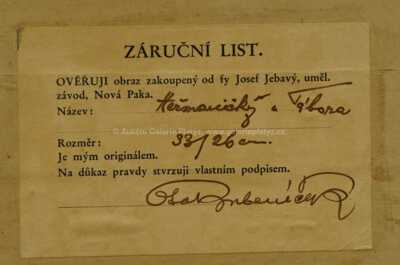 ZÁRUČNÍ LIST.
OVĚŘUJI obraz zakoupený od fy Josef Jebavý, uměl.
závod, Nová Paka.
Název: Heřmaničky u Tábora
© Aukční Galerie Platýz, www.galerieplatyz.cz
Rozměr: 33/26 cm.
Je mým originálem.
Na důkaz pravdy stvrzuji vlastním podpisem.
Otakar